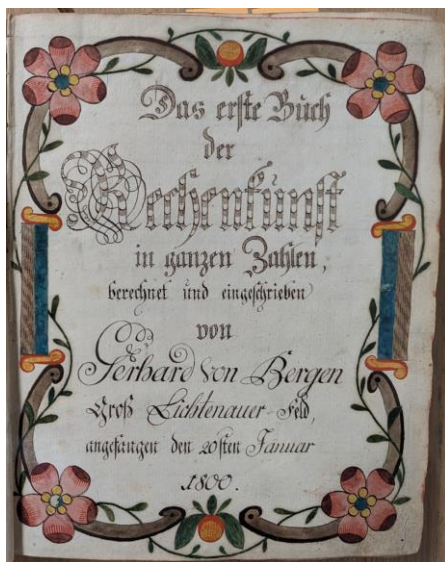 Das erste Buch
der
Rechenkunst
in ganzen Zahlen,
berechnet und eingeschrieben
von
Gerhard von Bergen
Groß Lichtenauer-Feld,
angefangen den 20sten Januar
1800.